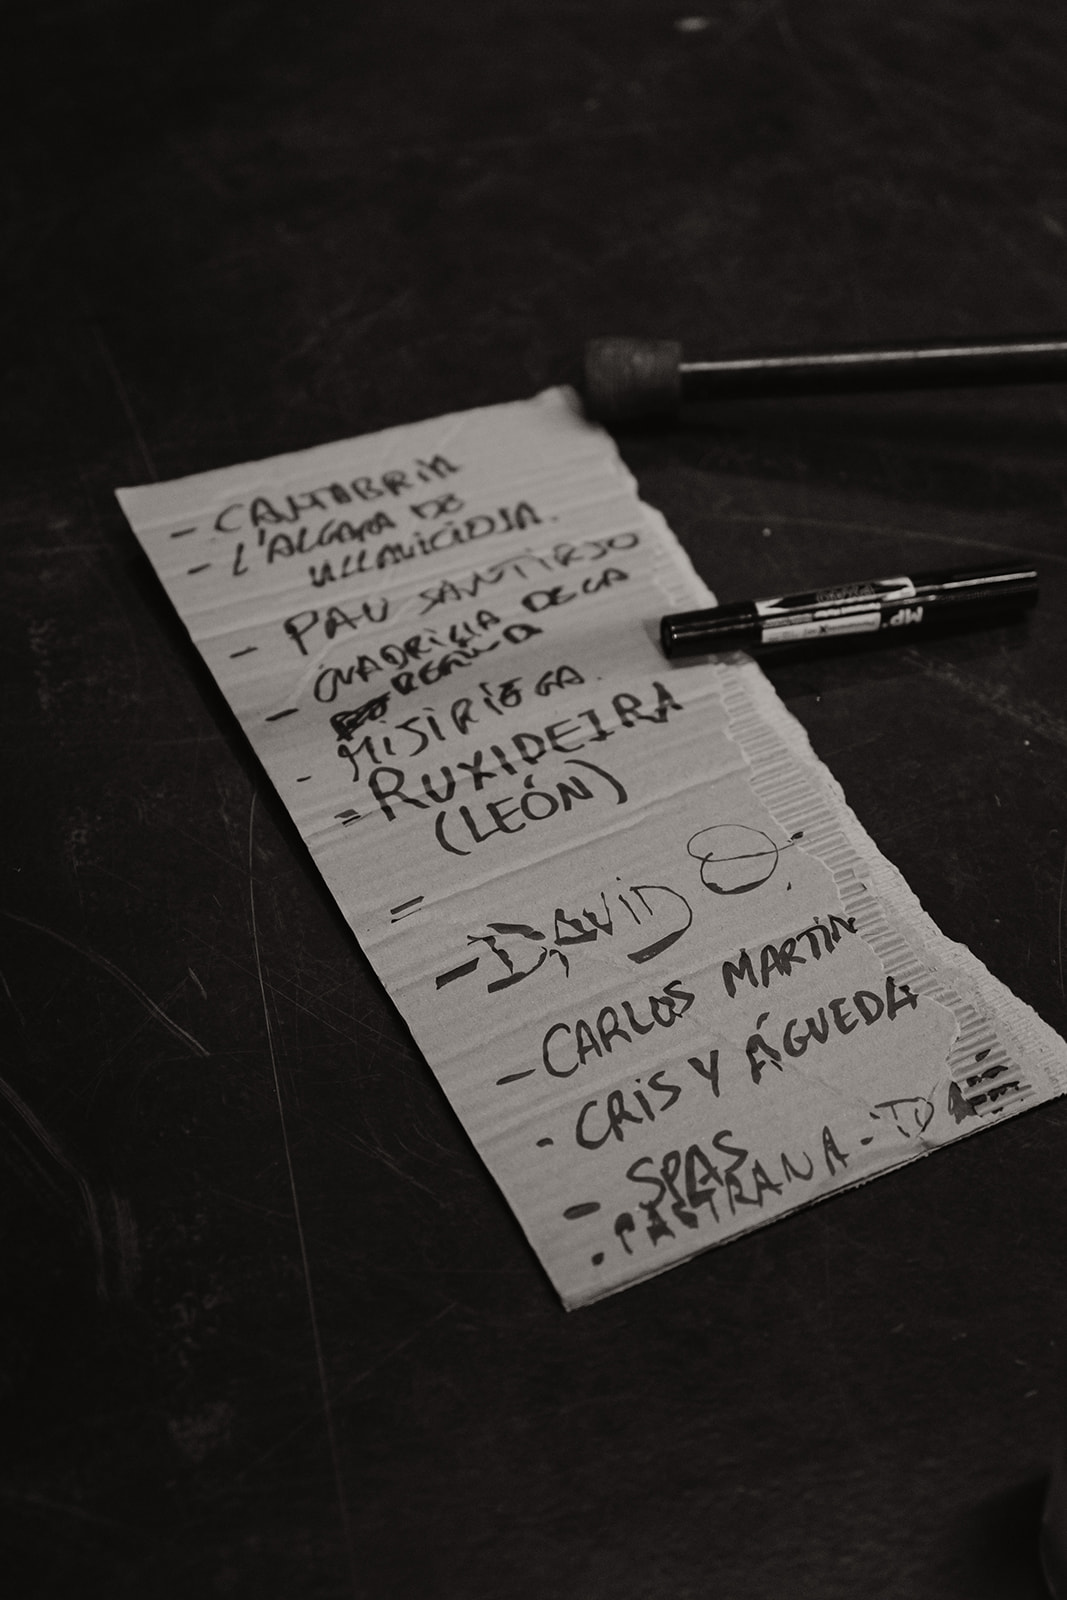 - CANTABRIA
- L'ALGARA DE
VILLAVICIOSA.
- PAU SANTIRSO
- CUADRILLA DE LA
REGUD
- MISIRIEGA.
= RUXIDEIRA
(LEÓN)
=
- DAVID
- CARLOS MARTÍN
- CRIS Y ÁGUEDA
- SPAS
. PASTRANA - TO
MP